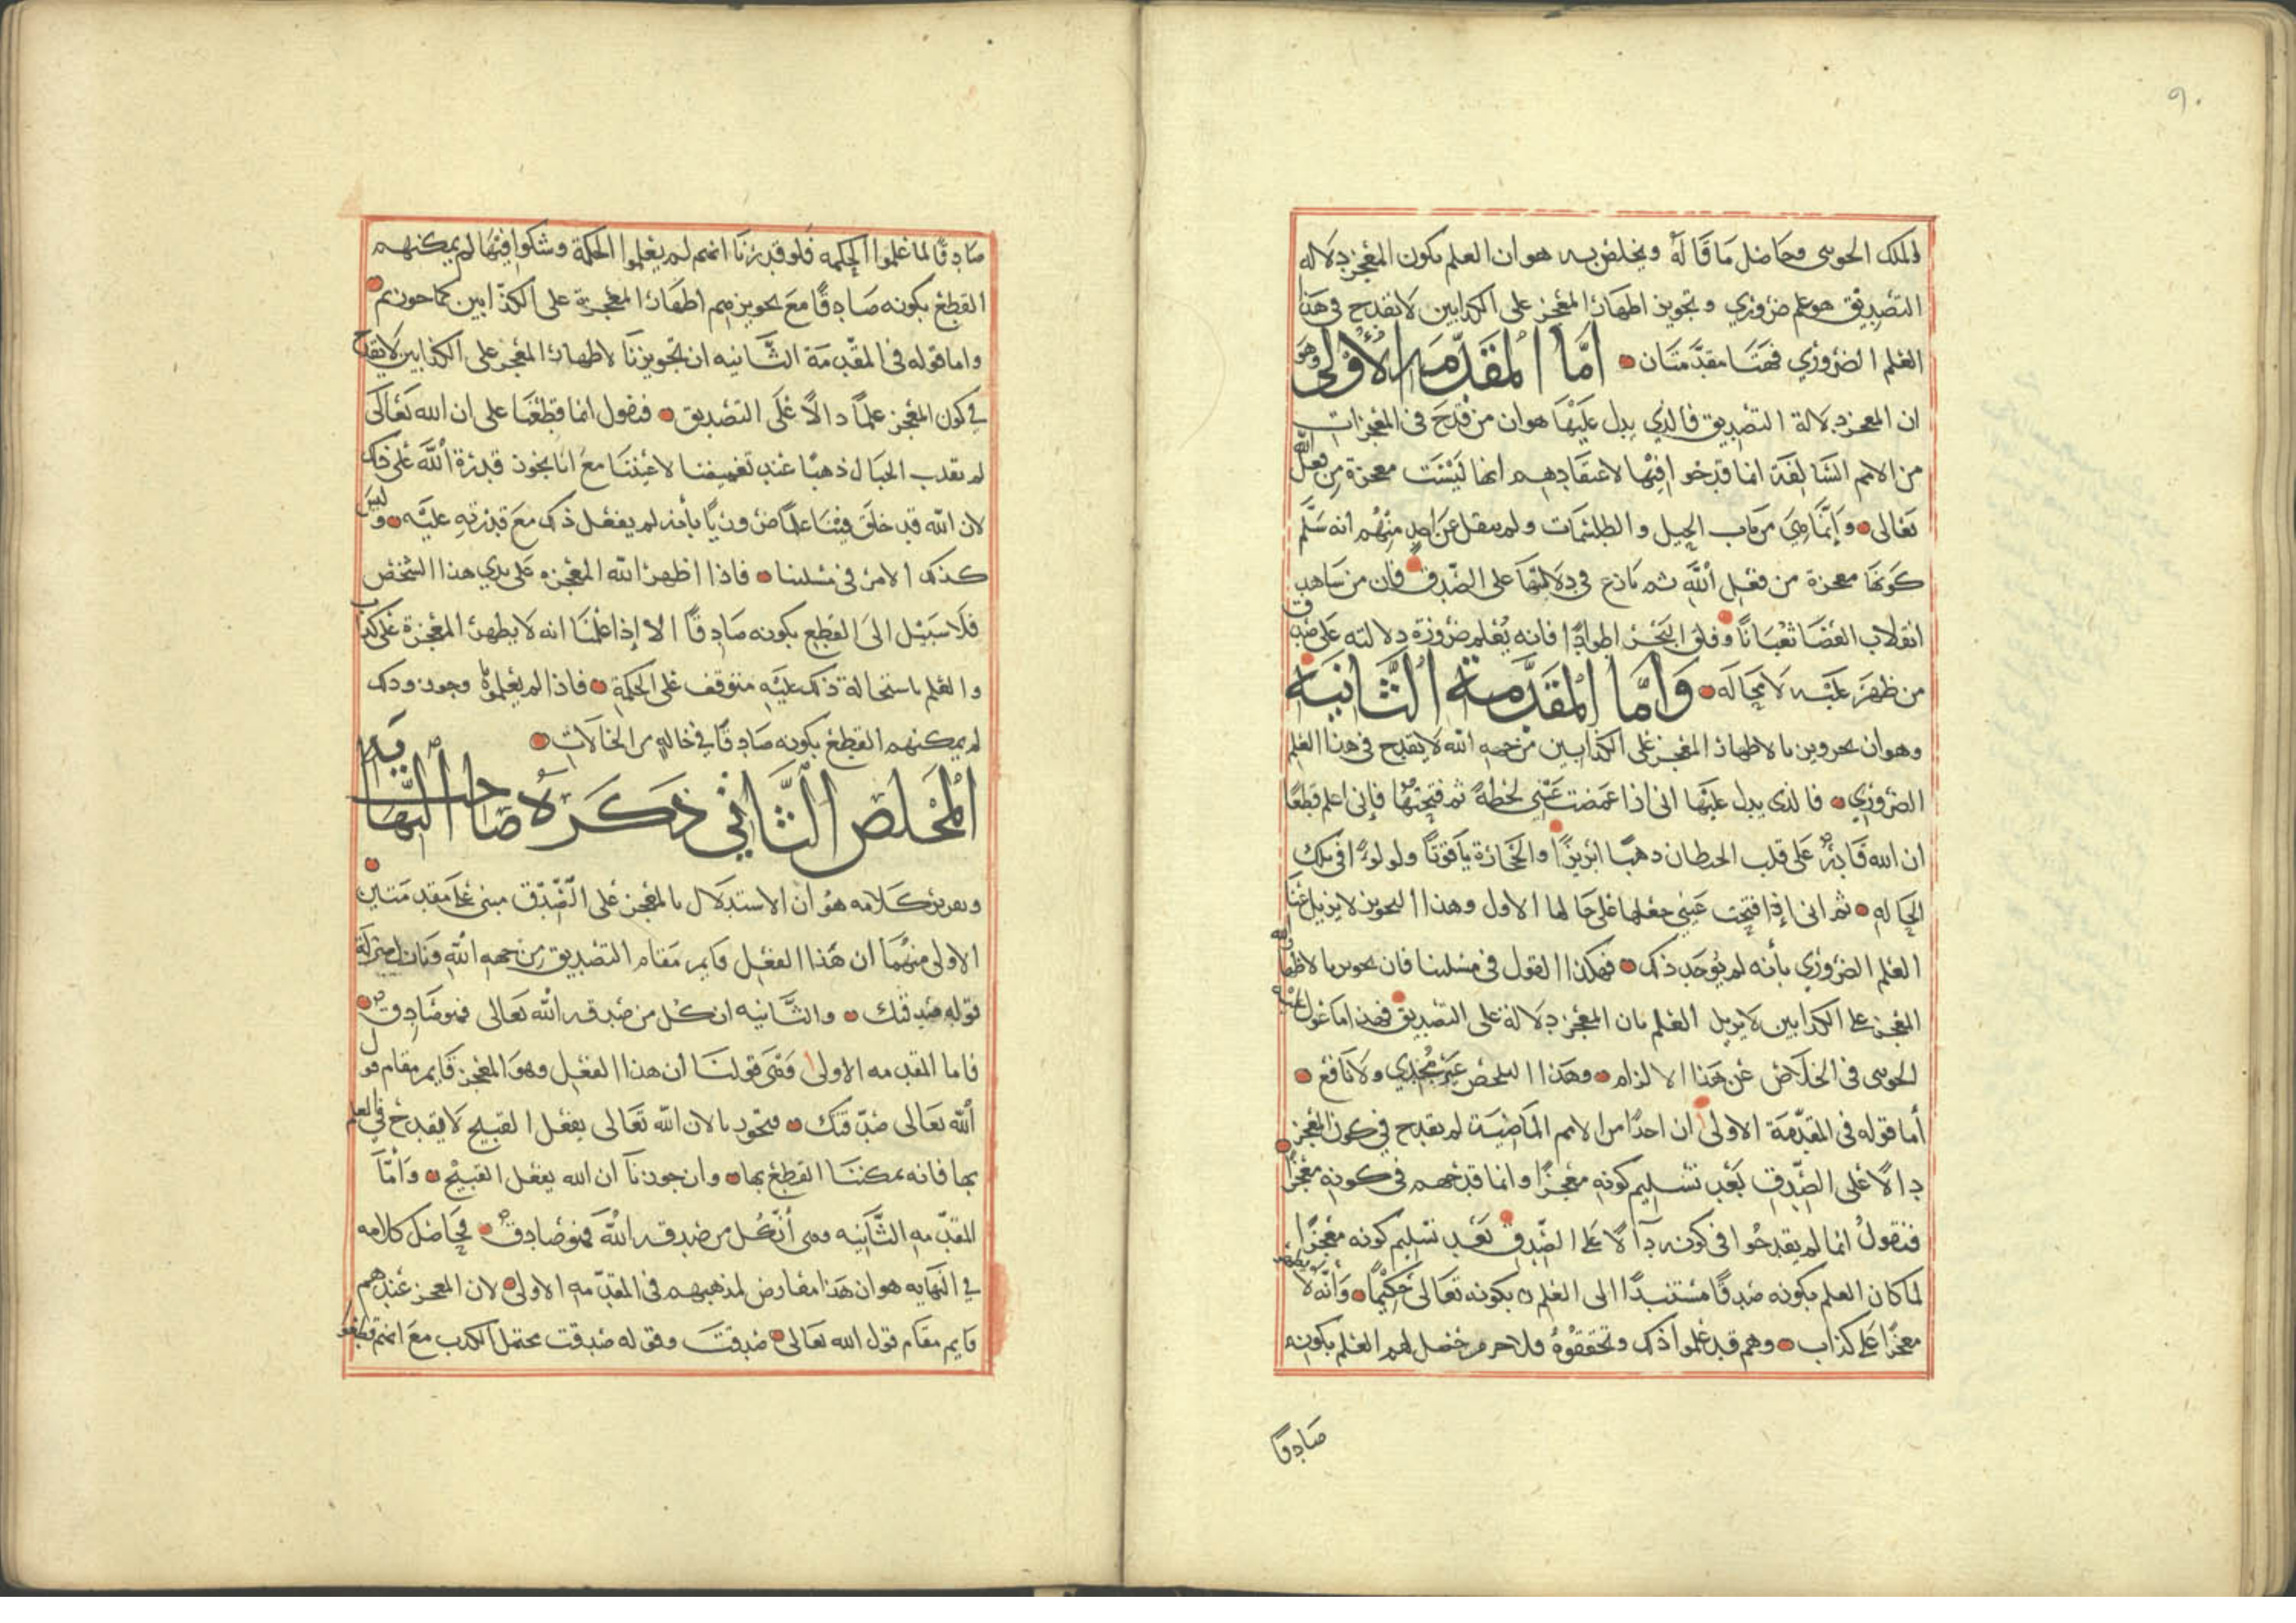 ٩٠
الملك الجوىى وحاصل ما قاله ويخلص به هو ان العلم بكون المعجز دلاله
التصديق هو علم ضروري وتجويز اظهار المعجز على الكذابين لا يقدح في هذا
العلم الضروري فهتا مقدمتان اما المقدمه الاولى وهو
ان المعجز دلالة التصديق فالذي يدل عليها هو ان من قدح في المعجزات
من الامم السالفة انما قدحوا فيها لاعتقادهم انها ليست معجزة من فعل الله
تعالى وانما هي من باب الحيل والطلسمات ولم ينقل عن احد منهم انه سلم
كونها معجزة من فعل الله ثم نازع في دلالتها على الصدق فان من شاهد
انقلاب العصا ثعبانًا وفلق البحر اطوادًا فانه يعلم ضرورة دلالته على صدق
من ظهر عليه لا محاله واما المقدمة الثانية
وهو ان تجويزنا لاظهار المعجز على الكذابين من جهه الله لا يقدح في هذا العلم
الضروري فالذي يدل عليها اني اذا غمضت عيني لحظة ثم فتحتها فاني اعلم قطعًا
ان الله قادر على قلب الحيطان ذهبًا ابريزًا والحجارة ياقوتًا ولولوءًا في تلك
الحاله ثم اني اذا فتحت عيني جعلها على حالها الاول وهذا التجويز لا يزيل عنا
العلم الضروري بأنه لم يوجد ذلك فهكذا القول في مسلتنا فان تجويزنا لاظهار الله
المعجز على الكذابين لا يزيل العلم بان المعجز دلالة على التصديق فهذا ما عول عليه
الجوىى في الخلاص عن هذا الالزام وهذا الملخص غير مجدي ولا نافع
أما قوله في المقدمة الاولى ان احدًا من الامم الماضية لم يقدح في كون المعجز
دالًا على الصدق بعد تسليم كونه معجزًا وانما قدحهم في كونه معجزًا
فنقول انما لم يقدحوا في كونه دالًا على الصدق بعد تسليم كونه معجزًا
لما كان العلم بكونه صدقًا مستندًا الى العلم بكونه تعالى حكيمًا وانه لا يظهر
معجزًا على كذاب وهم قد علموا ذلك وتحققوه فلا جرم حصل لهم العلم بكونه
صادقًا
صادقًا لما علموا الحكمه فلو قدرنا انهم لم يعلموا الحكمة وشكوا فيها لم يمكنهم
القطع بكونه صادقًا مع تجويزهم اظهار المعجزة على الكذابين كما جوزتم
واما قوله في المقدمة الثانيه ان تجويزنا لاظهار المعجز على الكذابين لا يقدح
في كون المعجز علمًا دالًا على التصديق فنقول انما قطعنا على ان الله تعالى
لم يقلب الجبال ذهبًا عند تغميضنا لاعيننا مع انا نجوز قدرة الله على ذلك
لان الله قد خلق فينا علمًا ضروريًا بأنه لم يفعل ذلك مع قدرته عليه وليس
كذلك الامر في مسلتنا فاذا اظهر الله المعجزه على يدي هذا الشخص
فلا سبيل الى القطع بكونه صادقًا الا إذا علمنا انه لا يظهر المعجزة على كذاب
والعلم باستحالة ذلك عليه متوقف على الحكمة فاذا لم يعلموها وجوزو ذلك
لم يمكنهم القطع بكونه صادقًا في حالة من الحالات
المخلص الثاني ذكره صاحب النهايه
وتقرير كلامه هو ان الاستدلال بالمعجز على الصدق مبني على مقدمتين
الاولى منهما ان هذا الفعل قايم مقام التصديق من جهه الله ونازل منزلة
قوله صدقتك والثانيه ان كل من صدقه الله تعالى فهو صادق
فاما المقدمه الاولى وهى قولنا ان هذا الفعل وهو المعجز قايم مقام قول
الله تعالى صدقتك فتجويزنا لان الله تعالى يفعل القبيح لا يقدح في العلم
بها فانه يمكننا القطع بها وان جوزنا ان الله يفعل القبيح وأما
المقدمه الثانيه وهى أن كل من صدقه الله فهو صادق فحاصل كلامه
في النهايه هو ان هذا معارض لمذهبهم في المقدمه الاولى لان المعجز عندهم
قايم مقام قول الله تعالى صدقت وقوله صدقت محتمل الكذب مع انهم قطعو